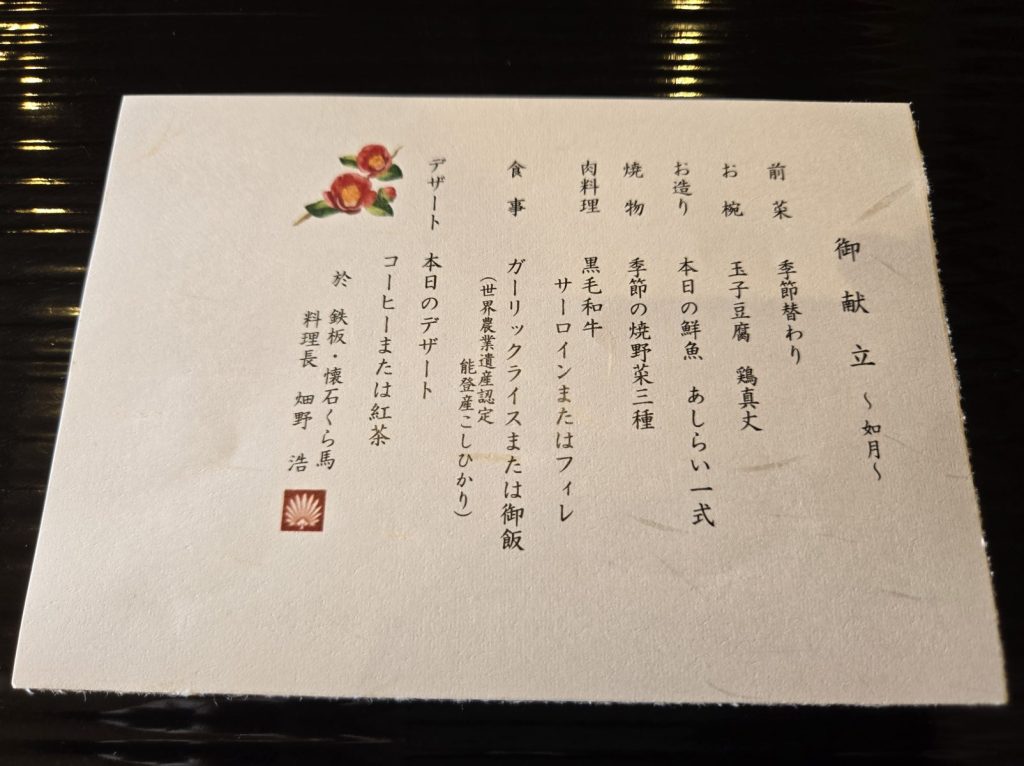 御献立 ～如月～
前菜 季節替わり
お椀 玉子豆腐 鶏真丈
お造り 本日の鮮魚 あしらい一式
焼物 季節の焼野菜三種
肉料理 黒毛和牛
サーロインまたはフィレ
食事 ガーリックライスまたは御飯
（世界農業遺産認定
能登産こしひかり）
デザート 本日のデザート
コーヒーまたは紅茶
於 鉄板・懐石くら馬
料理長 畑野 浩